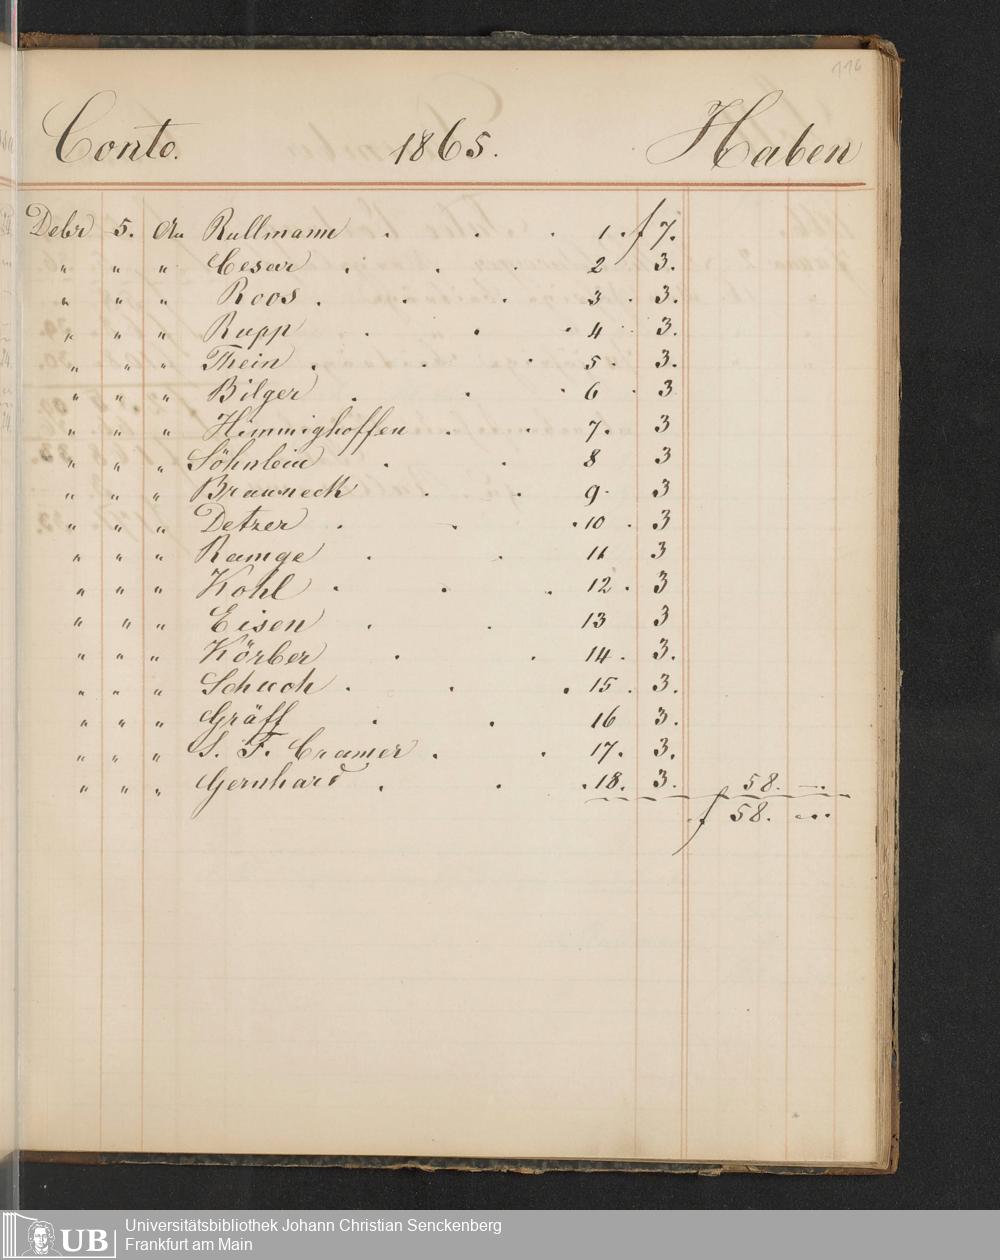 116
Conto. 1865. Haben
Debr 5. An Rullmann . . . 1. f 7.
" " " Cesar . . . 2 3.
" " " Roos . . . 3 . 3.
" " " Rupp . . . 4 . 3.
" " " Thein . . . 5 . 3.
" " " Bilger . . . 6 . 3
" " " Himmighoffen . . 7. 3
" " " Söhnlein . . 8 3
" " " Brauneck . . 9. 3
" " " Detzer . . . 10 . 3
" " " Ramge . . 11 3
" " " Kohl . . . 12 . 3
" " " Eisen . . 13 3
" " " Körber . . 14 . 3.
" " " Schuch . . . 15 . 3.
" " " Gräff . . 16 3.
" " " S. F. Cramer . . 17. 3.
" " " Gernhard . . . 18. 3. 58. —..
f 58. —..
UB
Universitätsbibliothek Johann Christian Senckenberg
Frankfurt am Main